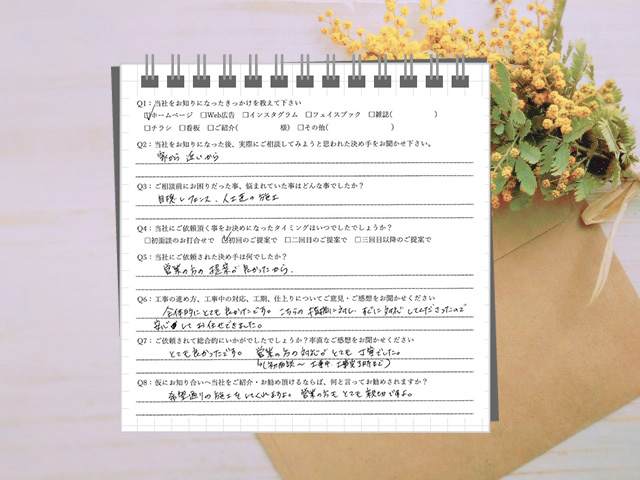 Q1：当社をお知りになったきっかけを教えて下さい
☑ホームページ □Web広告 □インスタグラム □フェイスブック □雑誌( )
□チラシ □看板 □ご紹介( 様) □その他( )
Q2：当社をお知りになった後、実際にご相談してみようと思われた決め手をお聞かせ下さい。
家から 近いから
Q3：ご相談前にお困りだった事、悩まれていた事はどんな事でしたか？
目隠しフェンス、人工芝の施工
Q4：当社にご依頼頂く事をお決めになったタイミングはいつでしたでしょうか？
□初面談のお打合せで ☑初回のご提案で □二回目のご提案で □三回目以降のご提案で
Q5：当社にご依頼された決め手は何でしたか？
営業の方の 提案が 良かったから。
Q6：工事の進め方、工事中の対応、工期、仕上りについてご意見・ご感想をお聞かせください
全体的にとても良かったです。こちらの 指摘に対し すぐに 対応 してくださったので
安心 して お任せできました。
Q7：ご依頼されて総合的にいかがでしたでしょうか？率直なご感想をお聞かせください
とても良かったです。 営業の方の対応が とても 丁寧でした。
(初面談〜 工事中、工事完了時まで)
Q8：仮にお知り合いへ当社をご紹介・お勧め頂けるならば、何と言ってお勧めされますか？
希望通りの 施工をしてくれますよ。 営業の方も とても 親切ですよ。